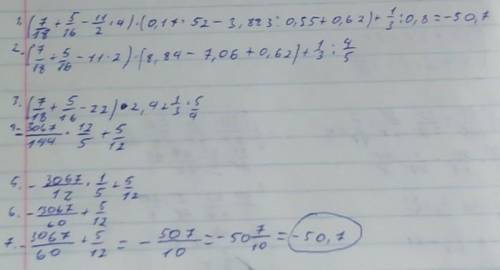 1. (7/18 + 5/16 - 11/2 · 4) · (0,17 · 52 - 3,883 : 0,55 + 0,62) + 1/3 : 0,8 = -50,7
2. (7/18 + 5/16 - 11 · 2) · (8,84 - 7,06 + 0,62) + 1/3 : 4/5
3. (7/18 + 5/16 - 22) · 2,4 + 1/3 · 5/4
4 = 3067/144 · 12/5 + 5/12
5. - 3067/12 · 1/5 + 5/12
6. - 3067/60 + 5/12
7. - 3067/60 + 5/12 = - 507/10 = -50 7/10 = -50,7